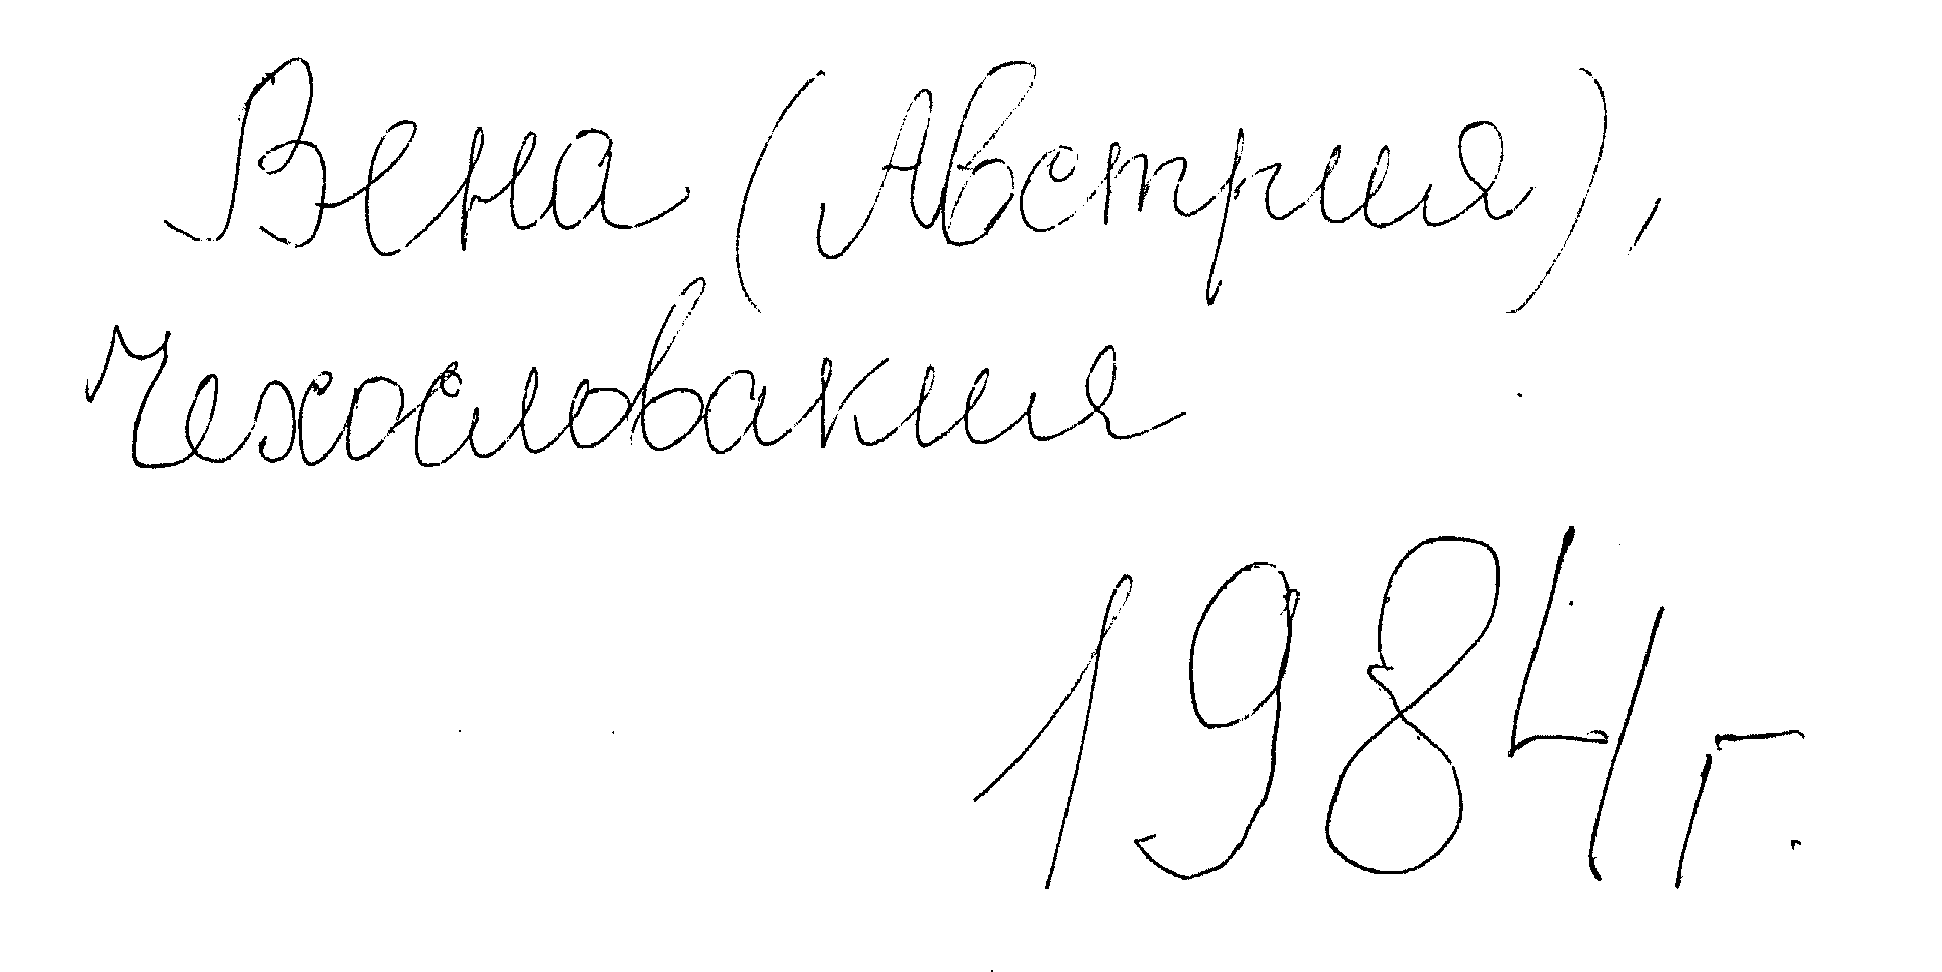 Вена (Австрия),
Чехословакия
1984 г.